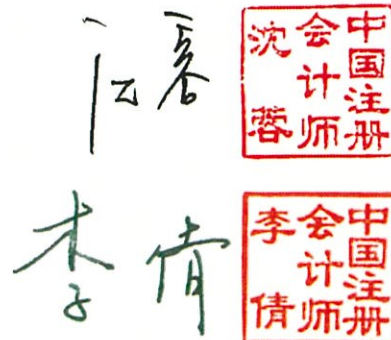 中国注册
会计师
沈蓉
李倩
中国注册
会计师
李倩